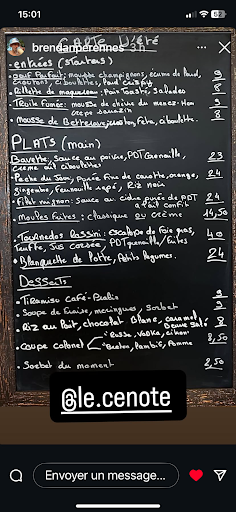 15:01
52
brendanperennes 3 h
CARTE D'ÉTÉ
ENTRÉES (starters)
œuf Parfait: mousse champignons, écume de lard, 9
croutons, ciboulettes, Pain crispy
Rillette de maquereau: Pain Toasté, Salades 8
Truite Fumée: mousse de chèvre du menez-Hom 9
crêpe sarrasin
mousse de Betterave, Feta, ciboulette 8
PLATS (main)
Bavette, Sauce au poivre, PDT grenaille, 23
crème et ciboulettes
Pêche du Jour, Purée fine de carotte, orange, 24
gingembre, fenouille, Riz noir
Filet mignon: Sauce au cidre purée de PDT 24
à l'ail confit
Moules frites: classique ou crème 14,50
Tournedos Rossini: Escalope de foie gras, 40
Truffe, Jus corsée, PDT grenaille/frites
Blanquette de Lotte, Petits légumes. 24
DESSERTS
Tiramisu Café-Brulin 9
Soupe de fraise, meringues, Sorbet 9
Riz au lait, chocolat Blanc, caramel 8
Beurre Salé
Coupe colonel Russe, Vodka, citron 8,50
Breton, Lambig, Pomme
Sorbet du moment 8,50
@le.cenote
Envoyer un message...